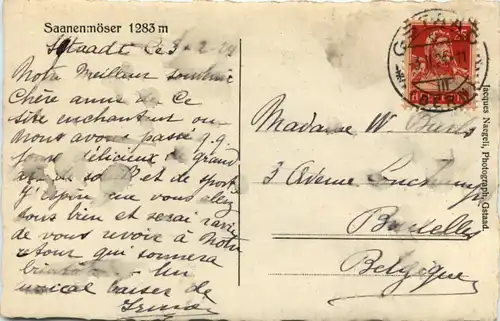 Saanenmöser 1283 m
Gstaadt Ce 3-2-24
Notre Meilleur souvenir
Chère amie de Ce
site enchanteur ou
Nous avons passé q.q.
jours délicieux de grand
air de soleil et de sport
J'espère que vous allez
tous bien et serai ravie
de vous revoir à Notre
retour qui sonnera
bientôt. Un
amical baiser de
Irma
Madame W.
3 Avenue Longchamp
Bruxelles
Belgique
Jacques Naegeli, Photograph, Gstaad.
25
GSTAAD
BERN
III